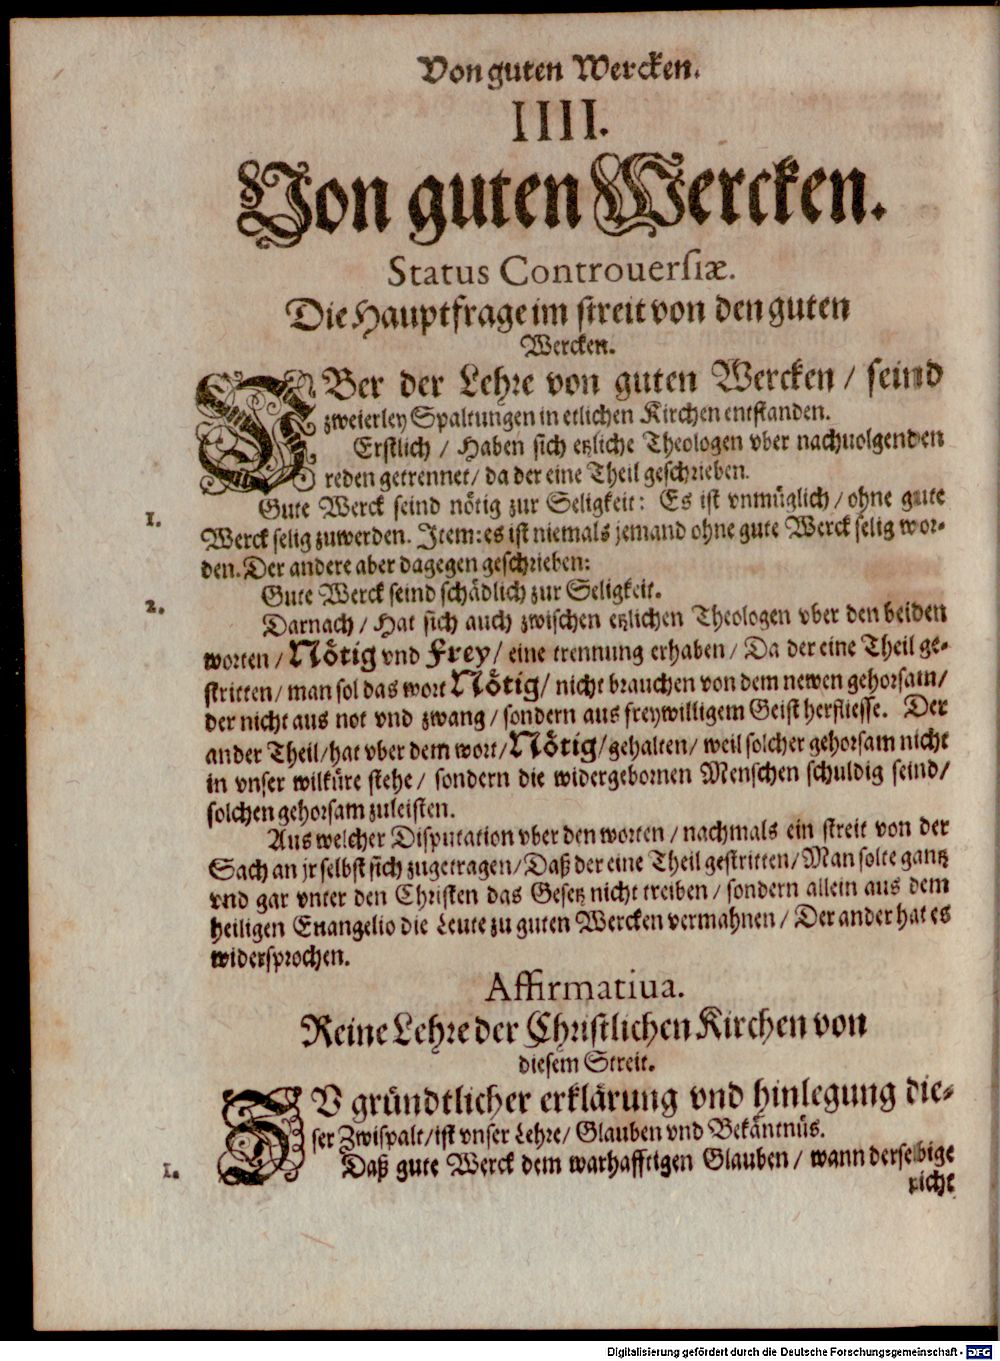 Von guten Wercken.
IIII.
Von guten Wercken.
Status Controuersiæ.
Die Hauptfrage im streit von den guten
Wercken.
UBer der Lehre von guten Wercken / seind
zweierley Spaltungen in etlichen Kirchen entstanden.
Erstlich / Haben sich etzliche Theologen vber nachuolgenden
reden getrennet / da der eine Theil geschrieben.
1. Gute Werck seind nötig zur Seligkeit: Es ist vnmüglich / ohne gute
Werck selig zuwerden. Item: es ist niemals jemand ohne gute Werck selig wor-
den. Der andere aber dagegen geschrieben:
Gute Werck seind schädlich zur Seligkeit.
2. Darnach / Hat sich auch zwischen etzlichen Theologen vber den beiden
worten / Nötig vnd Frey / eine trennung erhaben / Da der eine Theil ge-
stritten / man sol das wort Nötig / nicht brauchen von dem newen gehorsam /
der nicht aus not vnd zwang / sondern aus freywilligem Geist herfliesse. Der
ander Theil / hat vber dem wort / Nötig / gehalten / weil solcher gehorsam nicht
in vnser wilküre stehe / sondern die widergebornen Menschen schuldig seind /
solchen gehorsam zuleisten.
Aus welcher Disputation vber den worten / nachmals ein streit von der
Sach an jr selbst sich zugetragen / Daß der eine Theil gestritten / Man solte gantz
vnd gar vnter den Christen das Gesetz nicht treiben / sondern allein aus dem
heiligen Euangelio die Leute zu guten Wercken vermahnen / Der ander hat es
widersprochen.
Affirmatiua.
Reine Lehre der Christlichen Kirchen von
diesem Streit.
ZV gründtlicher erklärung vnd hinlegung die-
ser Zwispalt / ist vnser Lehre / Glauben vnd Bekäntnüs.
1. Daß gute Werck dem warhafftigen Glauben / wann derselbige
nicht
Digitalisierung gefördert durch die Deutsche Forschungsgemeinschaft - DFG